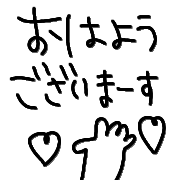 おはよう
ございまーす